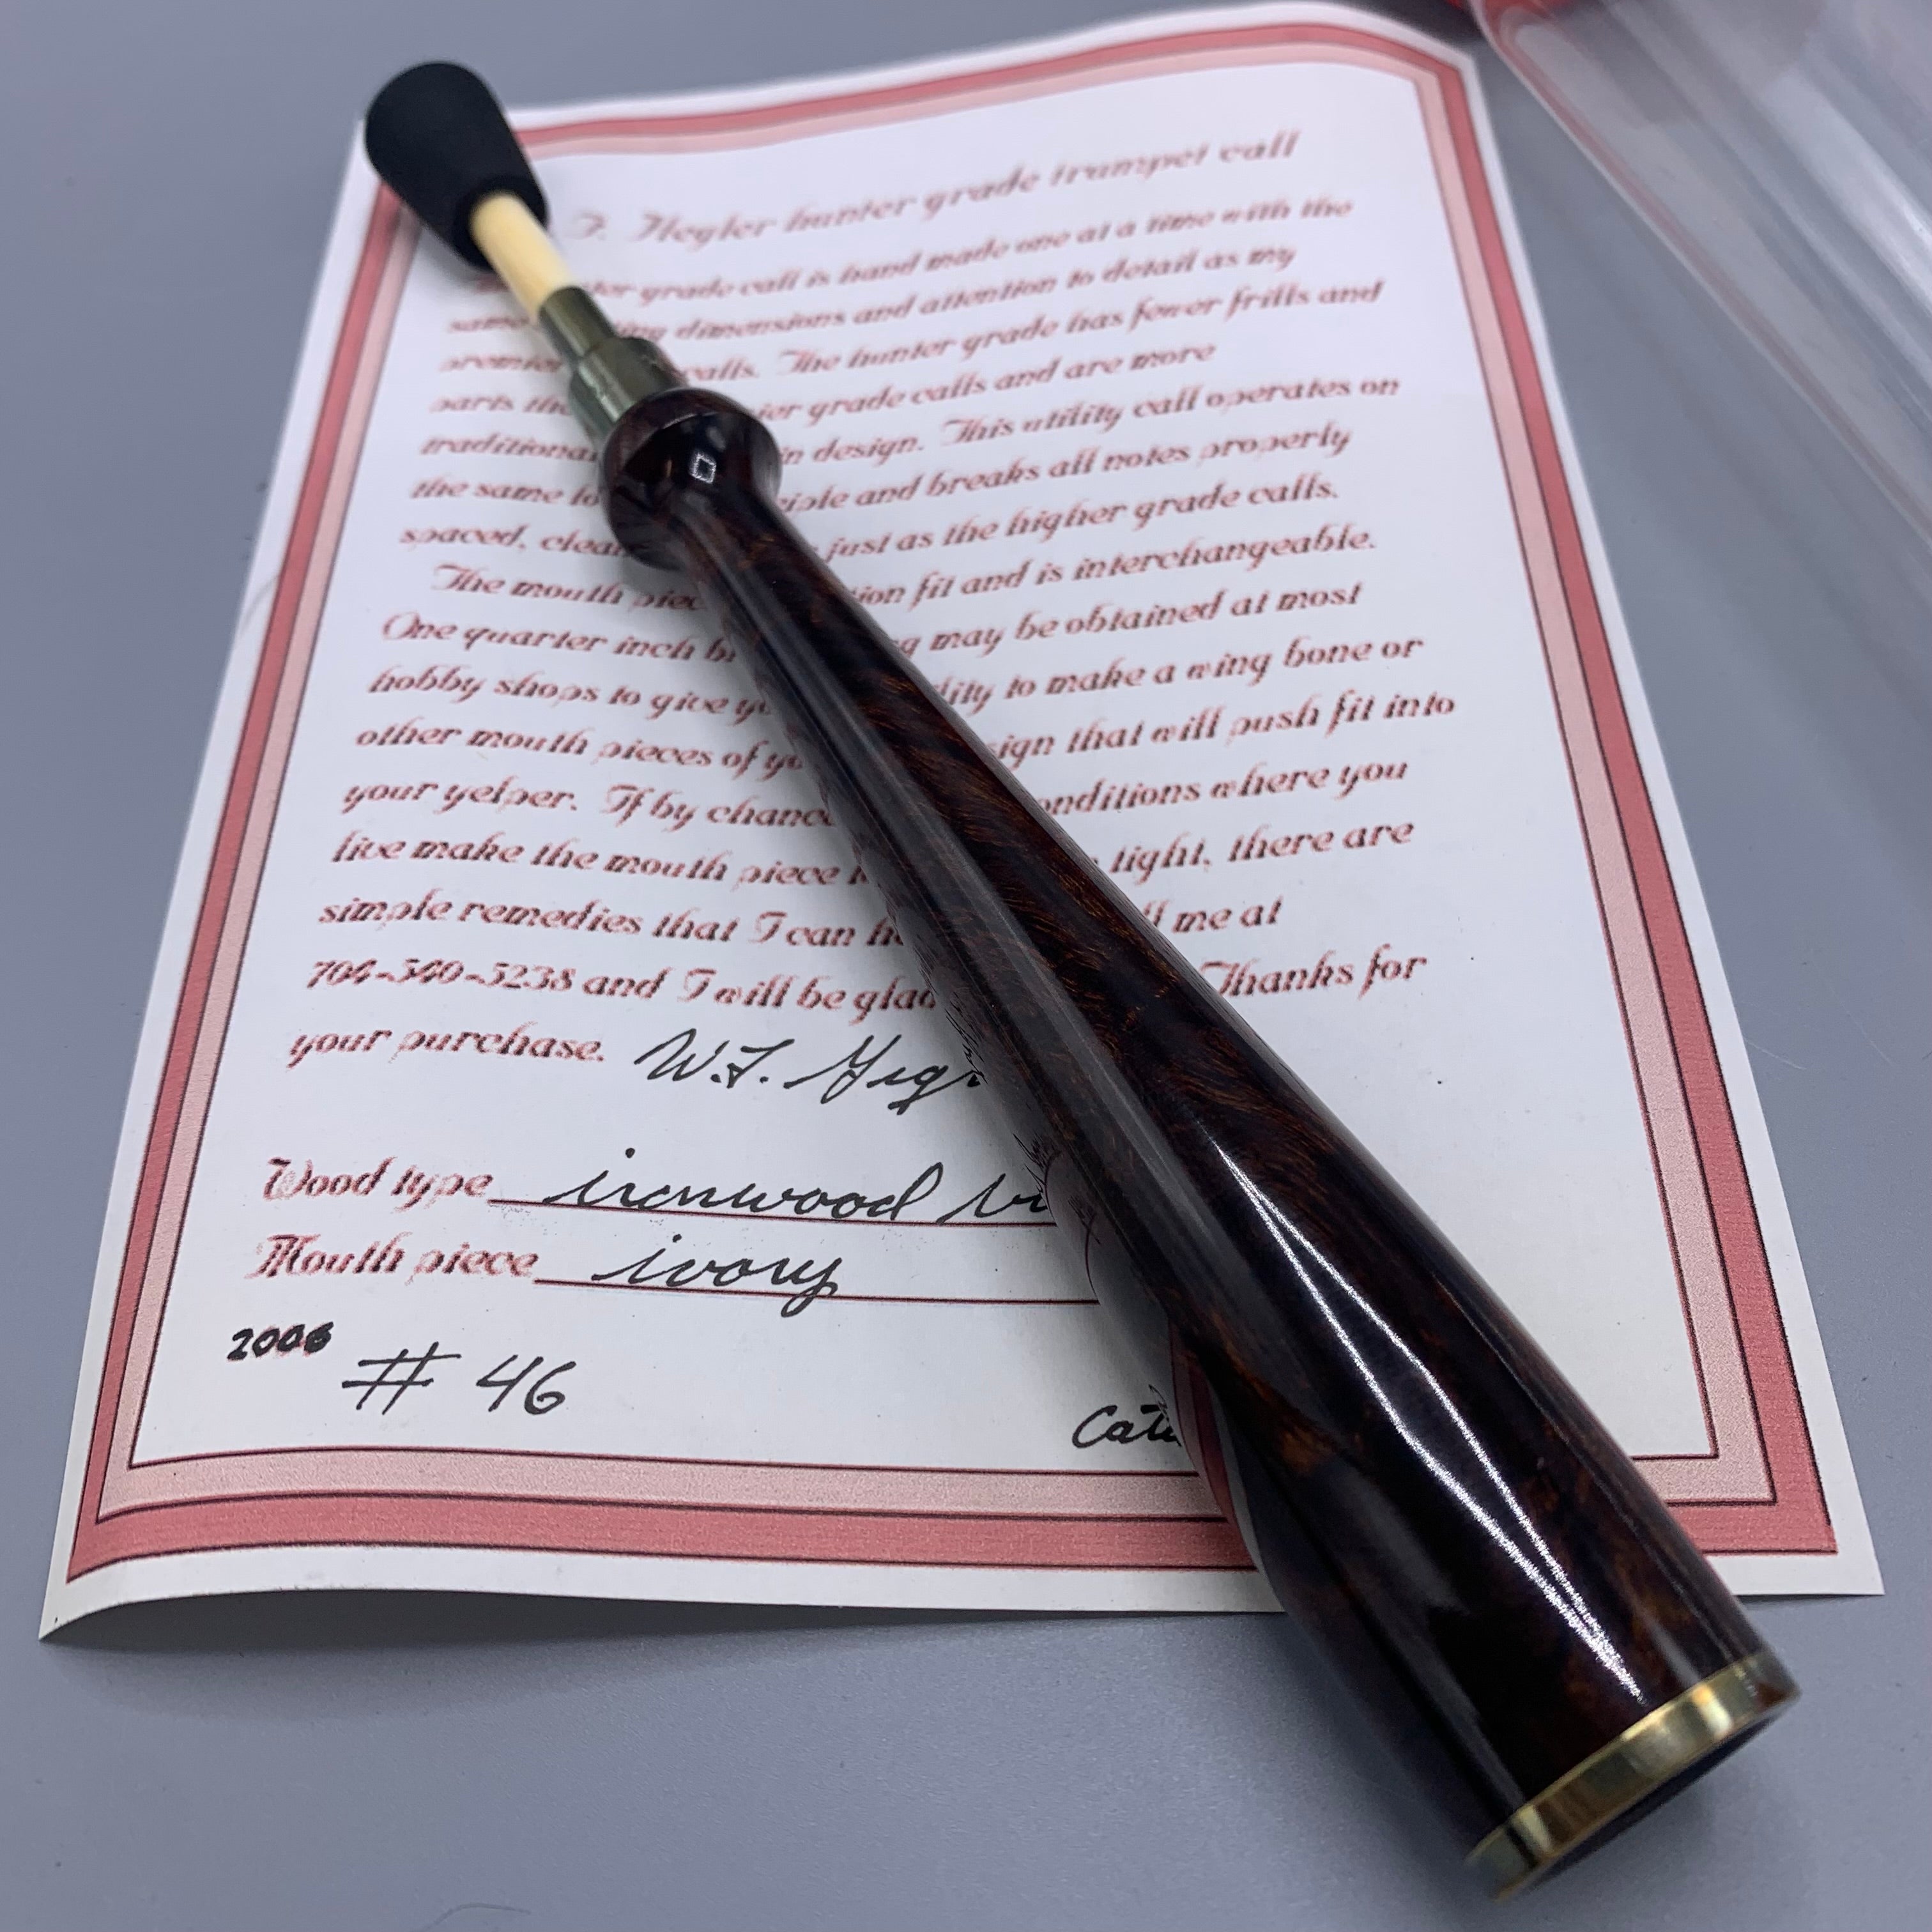 F. Hegler hunter grade trumpet call
grade call is hand made one at a time with the
same dimensions and attention to detail as my
premier calls. The hunter grade has fewer frills and
parts grade calls and are more
traditional in design. This utility call operates on
the same and breaks all notes properly
spaced, just as the higher grade calls.
The mouth fit and is interchangeable.
One quarter inch may be obtained at most
hobby shops to give to make a wing bone or
other mouth pieces of that will push fit into
your yelper. If by chance conditions where you
live make the mouth piece tight, there are
simple remedies that I can me at
704-540-5238 and I will be Thanks for
your purchase. W.F.
Wood type ironwood
Mouth piece ivory
2006 # 46